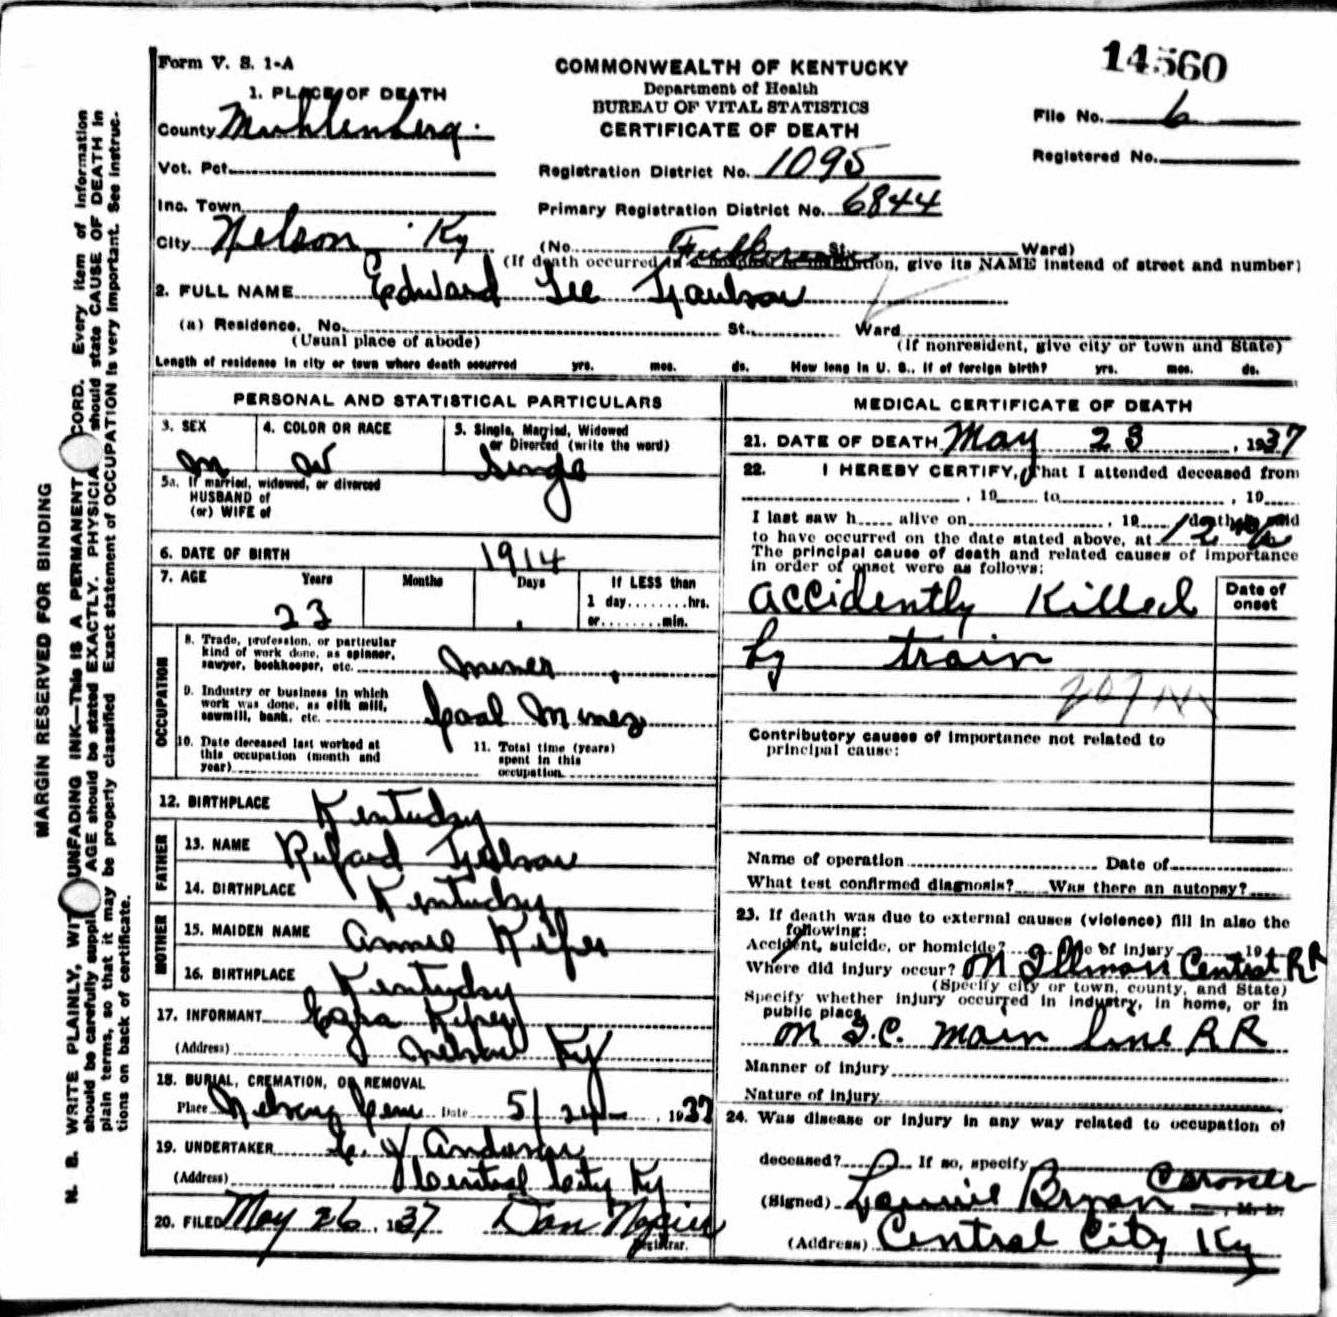 Form V. S. 1-A
COMMONWEALTH OF KENTUCKY
Department of Health
BUREAU OF VITAL STATISTICS
CERTIFICATE OF DEATH
14560
File No. 6
Registered No.
1. PLACE OF DEATH
County Muhlenberg.
Vot. Pct.
Inc. Town
City Nelson Ky
Registration District No. 1095
Primary Registration District No. 6844
(No. St. Ward)
(If death occurred in a hospital or institution, give its NAME instead of street and number)
2. FULL NAME Edward Lee
(a) Residence. No. St. Ward
(Usual place of abode) (If nonresident, give city or town and State)
Length of residence in city or town where death occurred yrs. mos. ds. How long in U. S., if of foreign birth? yrs. mos. ds.
PERSONAL AND STATISTICAL PARTICULARS
3. SEX 4. COLOR OR RACE 5. Single, Married, Widowed
or Divorced (write the word)
M W Single
5a. If married, widowed, or divorced
HUSBAND of
(or) WIFE of
6. DATE OF BIRTH 1914
7. AGE Years Months Days If LESS than
1 day........hrs.
or........min.
23
OCCUPATION
8. Trade, profession, or particular
kind of work done, as spinner,
sawyer, bookkeeper, etc. Miner
9. Industry or business in which
work was done, as silk mill,
sawmill, bank, etc. Coal Mines
10. Date deceased last worked at
this occupation (month and
year)
11. Total time (years)
spent in this
occupation
12. BIRTHPLACE Kentucky
FATHER
13. NAME Rufard
14. BIRTHPLACE Kentucky
MOTHER
15. MAIDEN NAME Annie
16. BIRTHPLACE Kentucky
17. INFORMANT Ezra
(Address) Nelson Ky
18. BURIAL, CREMATION, OR REMOVAL
Place Nelson Cem Date 5/24 , 1937
19. UNDERTAKER
(Address) Central City Ky
20. FILED May 26, 1937 Dan Napier
Registrar.
MEDICAL CERTIFICATE OF DEATH
21. DATE OF DEATH May 23 , 1937
22. I HEREBY CERTIFY, That I attended deceased from
, 19 to , 19
I last saw h alive on , 19 death is said
to have occurred on the date stated above, at 12
The principal cause of death and related causes of importance
in order of onset were as follows:
Date of
onset
accidently Killed
by train
Contributory causes of importance not related to
principal cause:
Name of operation Date of
What test confirmed diagnosis? Was there an autopsy?
23. If death was due to external causes (violence) fill in also the
following:
Accident, suicide, or homicide? of injury 19
Where did injury occur? on Illinois Central RR
(Specify city or town, county, and State)
Specify whether injury occurred in industry, in home, or in
public place.
on I.C. main line RR
Manner of injury
Nature of injury
24. Was disease or injury in any way related to occupation of
deceased? If so, specify
(Signed) Bryan Coroner M. D.
(Address) Central City Ky
MARGIN RESERVED FOR BINDING
N. B. WRITE PLAINLY, WITH UNFADING INK—THIS IS A PERMANENT RECORD. Every item of information
should be carefully supplied. AGE should be stated EXACTLY. PHYSICIANS should state CAUSE OF DEATH in
plain terms, so that it may be properly classified. Exact statement of OCCUPATION is very important. See instruc-
tions on back of certificate.